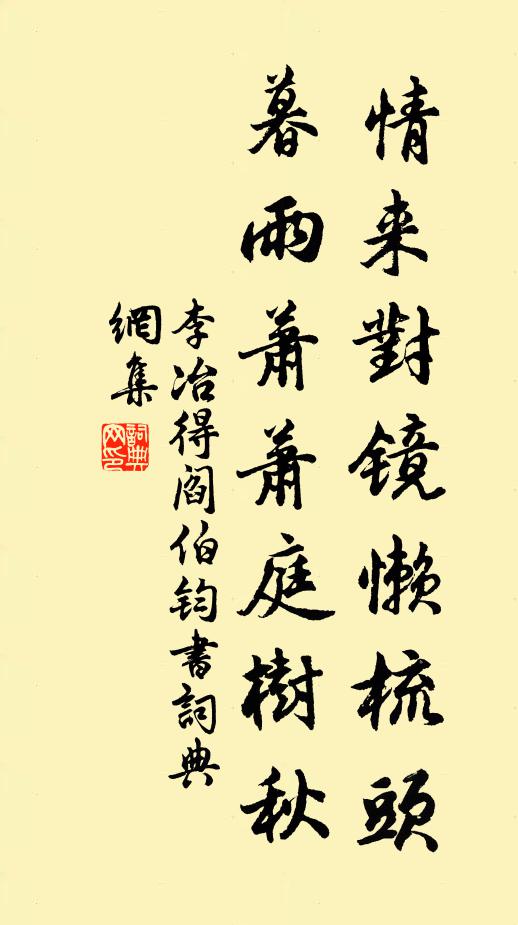 情来對镜懒梳頭
暮雨蕭蕭庭樹秋
李冶得阎伯钧書詞典
網集
詞典
网印